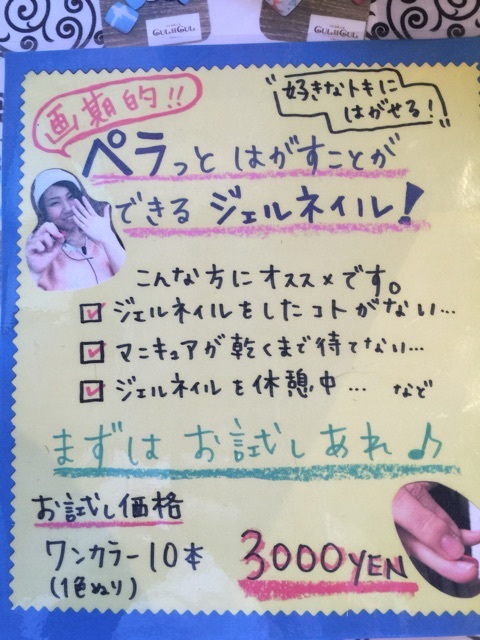 GUL.II GUL.
画期的!!
"好きなトキに
はがせる!"
ペラっと はがすことが
できる ジェルネイル!
こんな方にオススメです。
ジェルネイルをしたコトがない…
マニキュアが乾くまで待てない…
ジェルネイルを休憩中… など
まずは お試しあれ♪
お試し価格
ワンカラー10本
(1色ぬり)
3000YEN